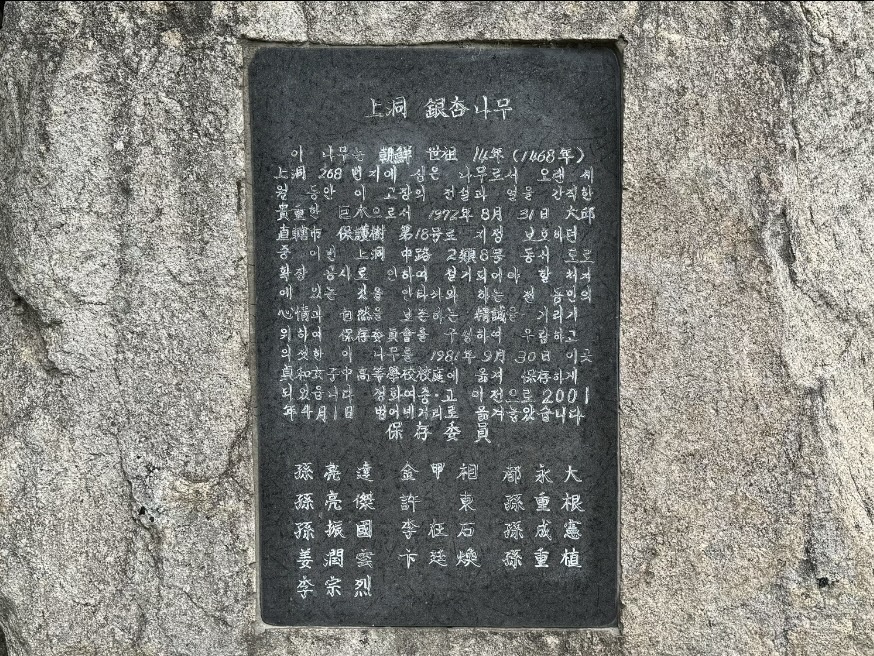 上洞 銀杏나무
이 나무는 朝鮮 世祖 14年 (1468年)
上洞 268 번지에 심은 나무로서 오랜 세
월 동안 이 고장의 전설과 얼을 간직한
貴重한 巨木으로서 1972年 8月 31日 大邱
直轄市 保護樹 第18号로 지정 보호하던
중 이번 上洞 中路 2類8号 동서 도로
확장 공사로 인하여 철거되어야 할 처지
에 있는 것을 안타까와 하는 전 동민의
心情과 自然을 보존하는 精誠을 기리기
위하여 保存委員會를 구성하여 우람하고
의젓한 이 나무를 1981年 9月 30日 이곳
貞和女子中高等學校校庭에 옮겨 保存하게
되었읍니다 정화여중·고 이전으로 2001
年 4月 1日 범어네거리로 옮겨놓았습니다
保存委員
孫亮達 金甲相 都永大
孫亮傑 許東 孫重根
孫振國 李枉石 孫成憲
姜潤雲 卞廷煥 孫重植
李宗烈